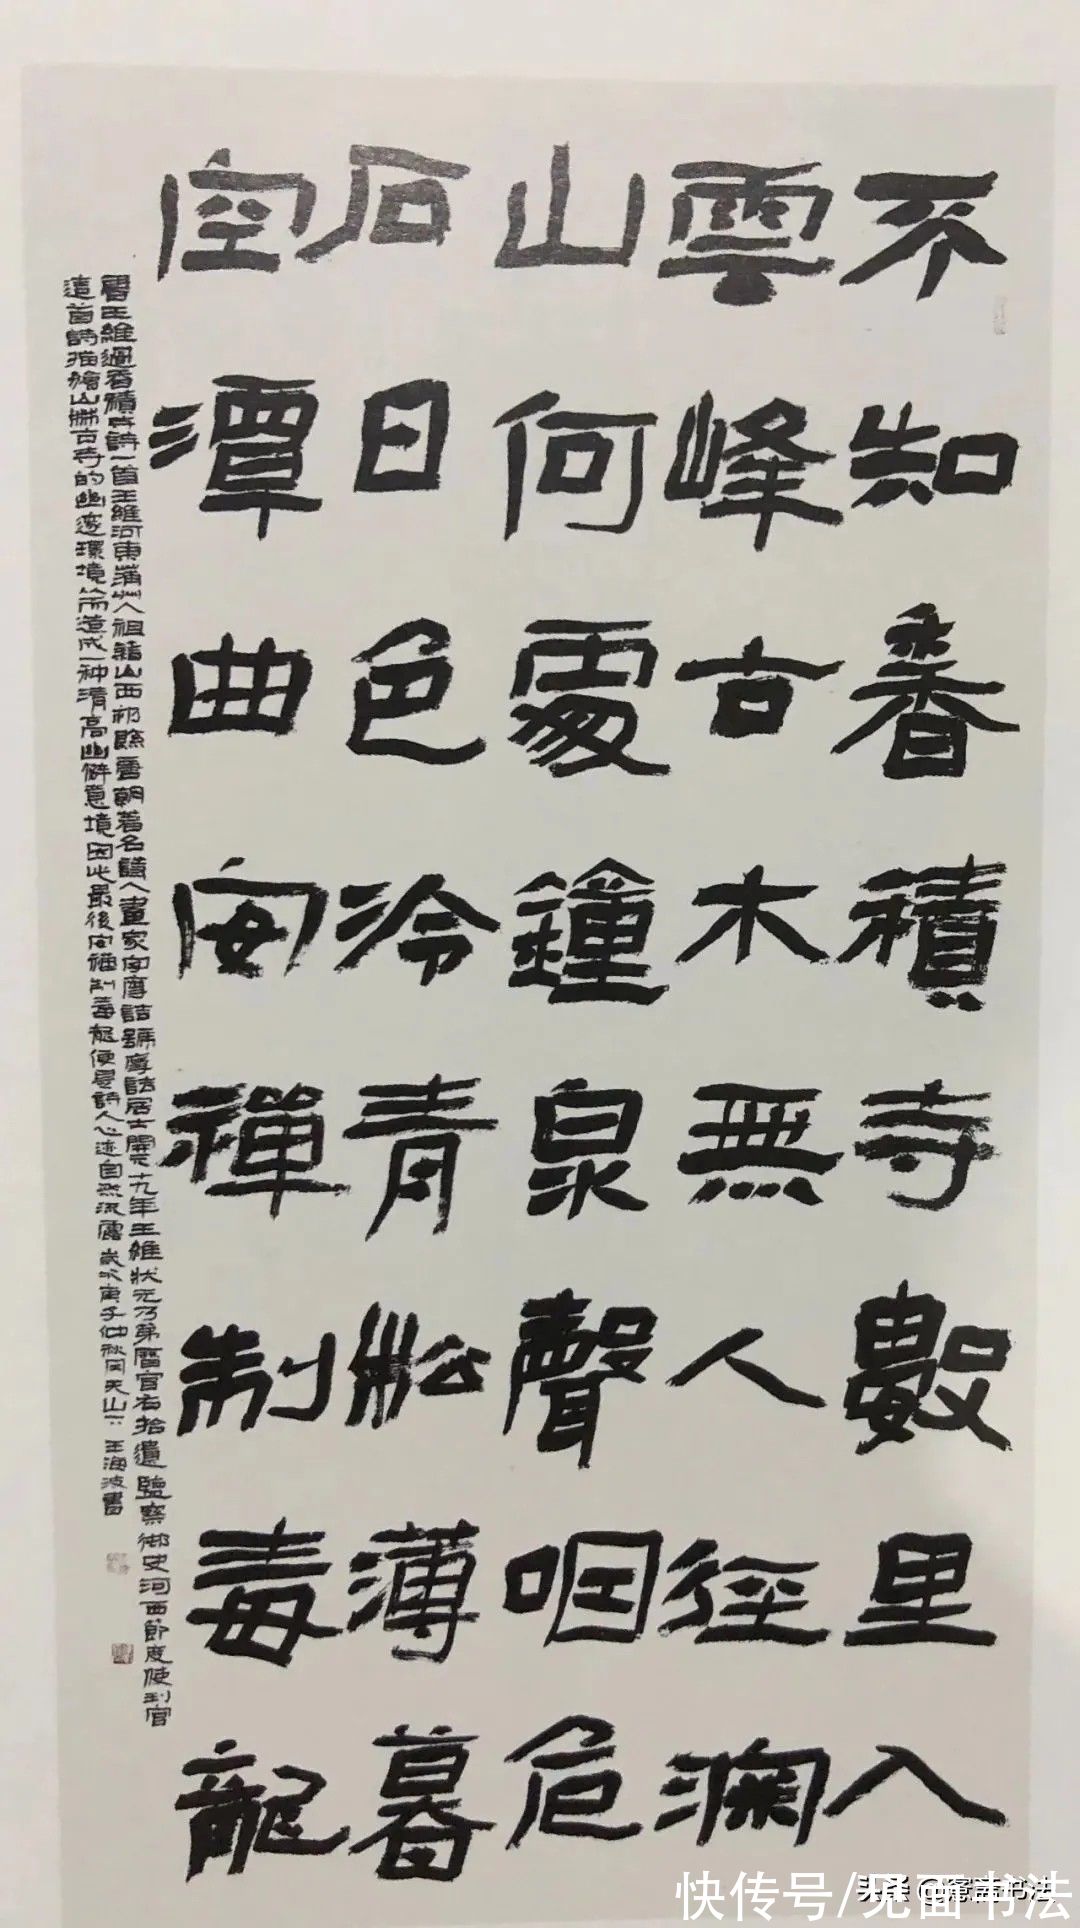 不知香積寺數里入
雲峰古木無人徑深
山何處鐘泉聲咽危
石日色冷青松薄暮
空潭曲安禪制毒龍
書王維過香積寺詩一首王維河東蒲州人祖籍山西祁縣唐朝著名詩人畫家字摩詰號摩詰居士開元十九年王維狀元及第歷官右拾遺監察御史河西節度使判官
這首詩描繪山林古寺的幽邃環境從而造成一种清高幽僻意境因此最後安禪制毒龍便是詩人心迹自然流露歲次庚子仲秋月天山下王海波書
快传号/见面书法
头条 书法